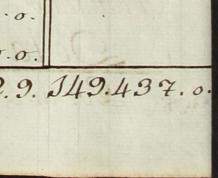 .o.
.o.
2.9. 149.437.o.